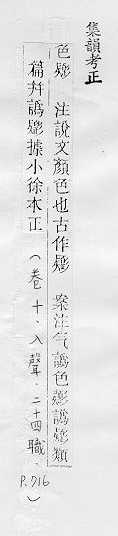 集韻考正
色𢒸 注說文顏色也古作𢒸 案注气譌色𢒸譌𢒸類
篇幷譌𢒸據小徐本正(卷十.入聲.二十四職.
P.716)